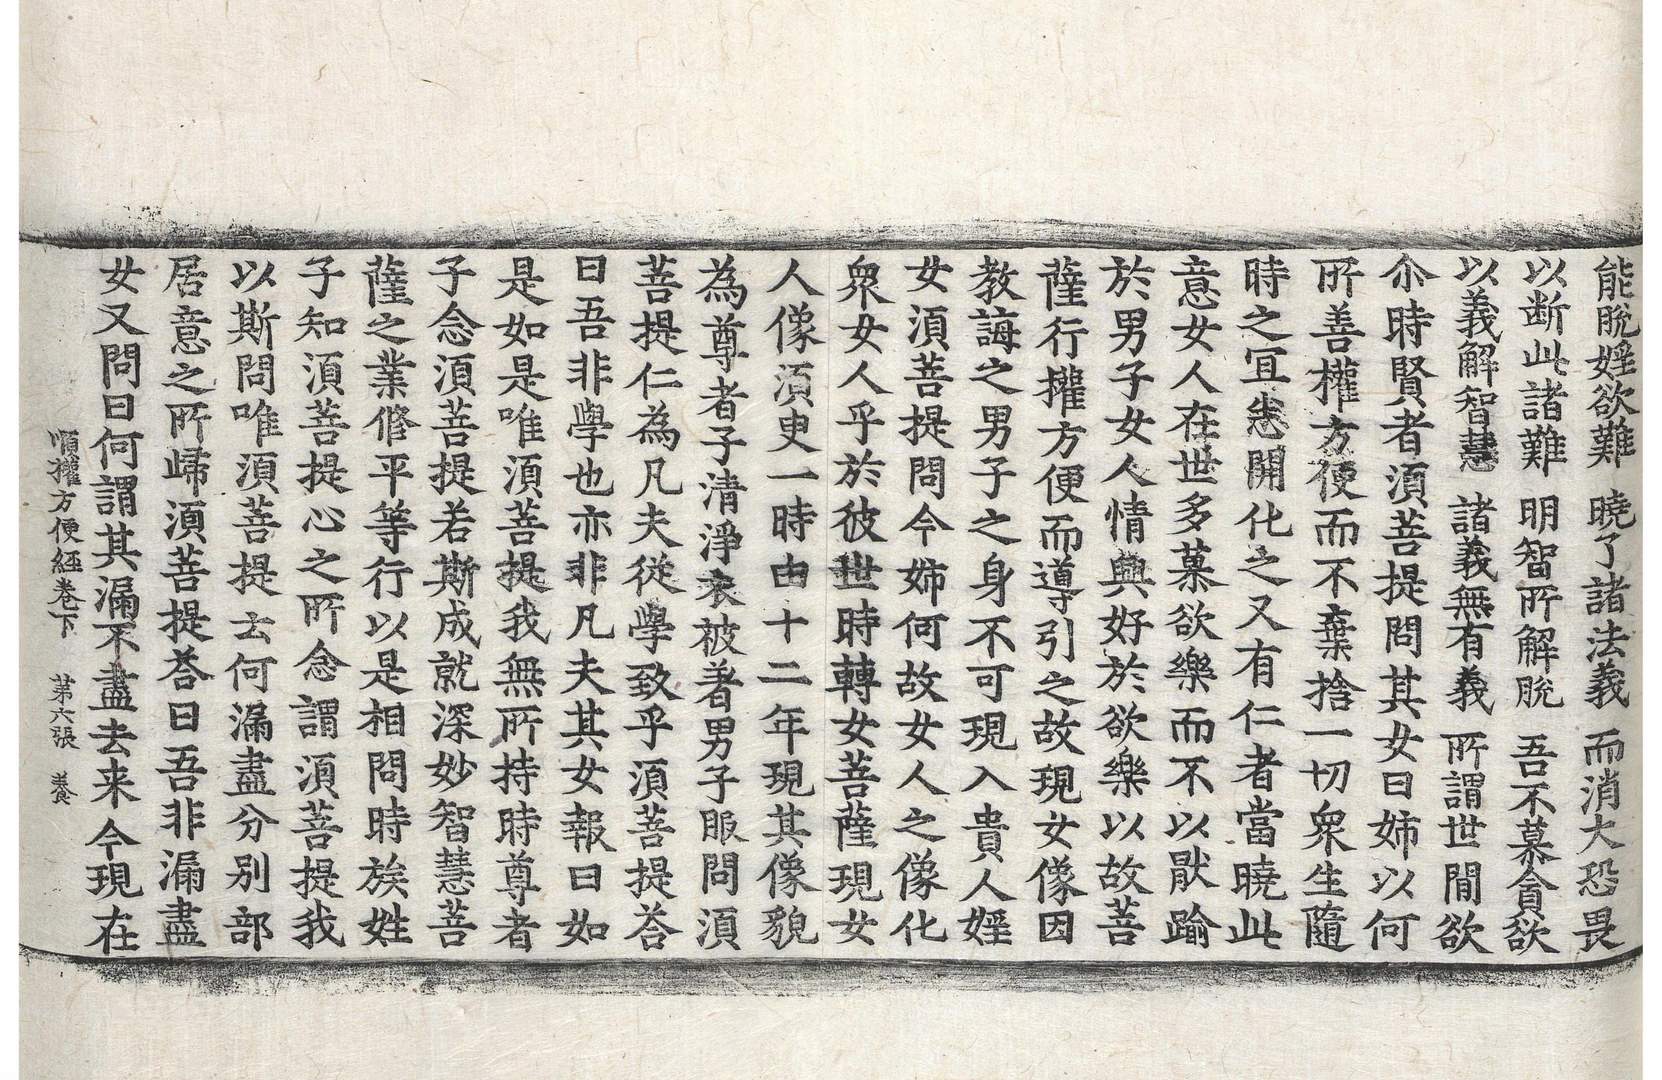 能脫婬欲難　曉了諸法義　而消大恐畏
以断此諸難　明智所解脫　吾不慕貪欲
以義解智慧　諸義無有義　所謂世閒欲
尒時賢者湏菩提問其女曰姉以何
所善權方便而不棄捨一切衆生隨
時之冝悉開化之又有仁者當曉此
意女人在世多慕欲樂而不以猒踰
於男子女人情興好於欲樂以故菩
薩行權方便而導引之故現女像因
教誨之男子之身不可現入貴人婬
女湏菩提問今姉何故女人之像化
衆女人乎於彼世時轉女菩薩現女
人像湏臾一時由十二年現其像貌
為尊者子清淨衣被著男子服問湏
菩提仁為凡夫從學致乎湏菩提荅
曰吾非學也亦非凡夫其女報曰如
是如是唯湏菩提我無所持時尊者
子念湏菩提若斯成就深妙智慧菩
薩之業修平等行以是相問時族姓
子知湏菩提心之所念謂湏菩提我
以斯問唯湏菩提云何漏盡分別部
居意之所歸湏菩提荅曰吾非漏盡
女又問曰何謂其漏不盡去来今現在
順權方便經卷下　第六張　養